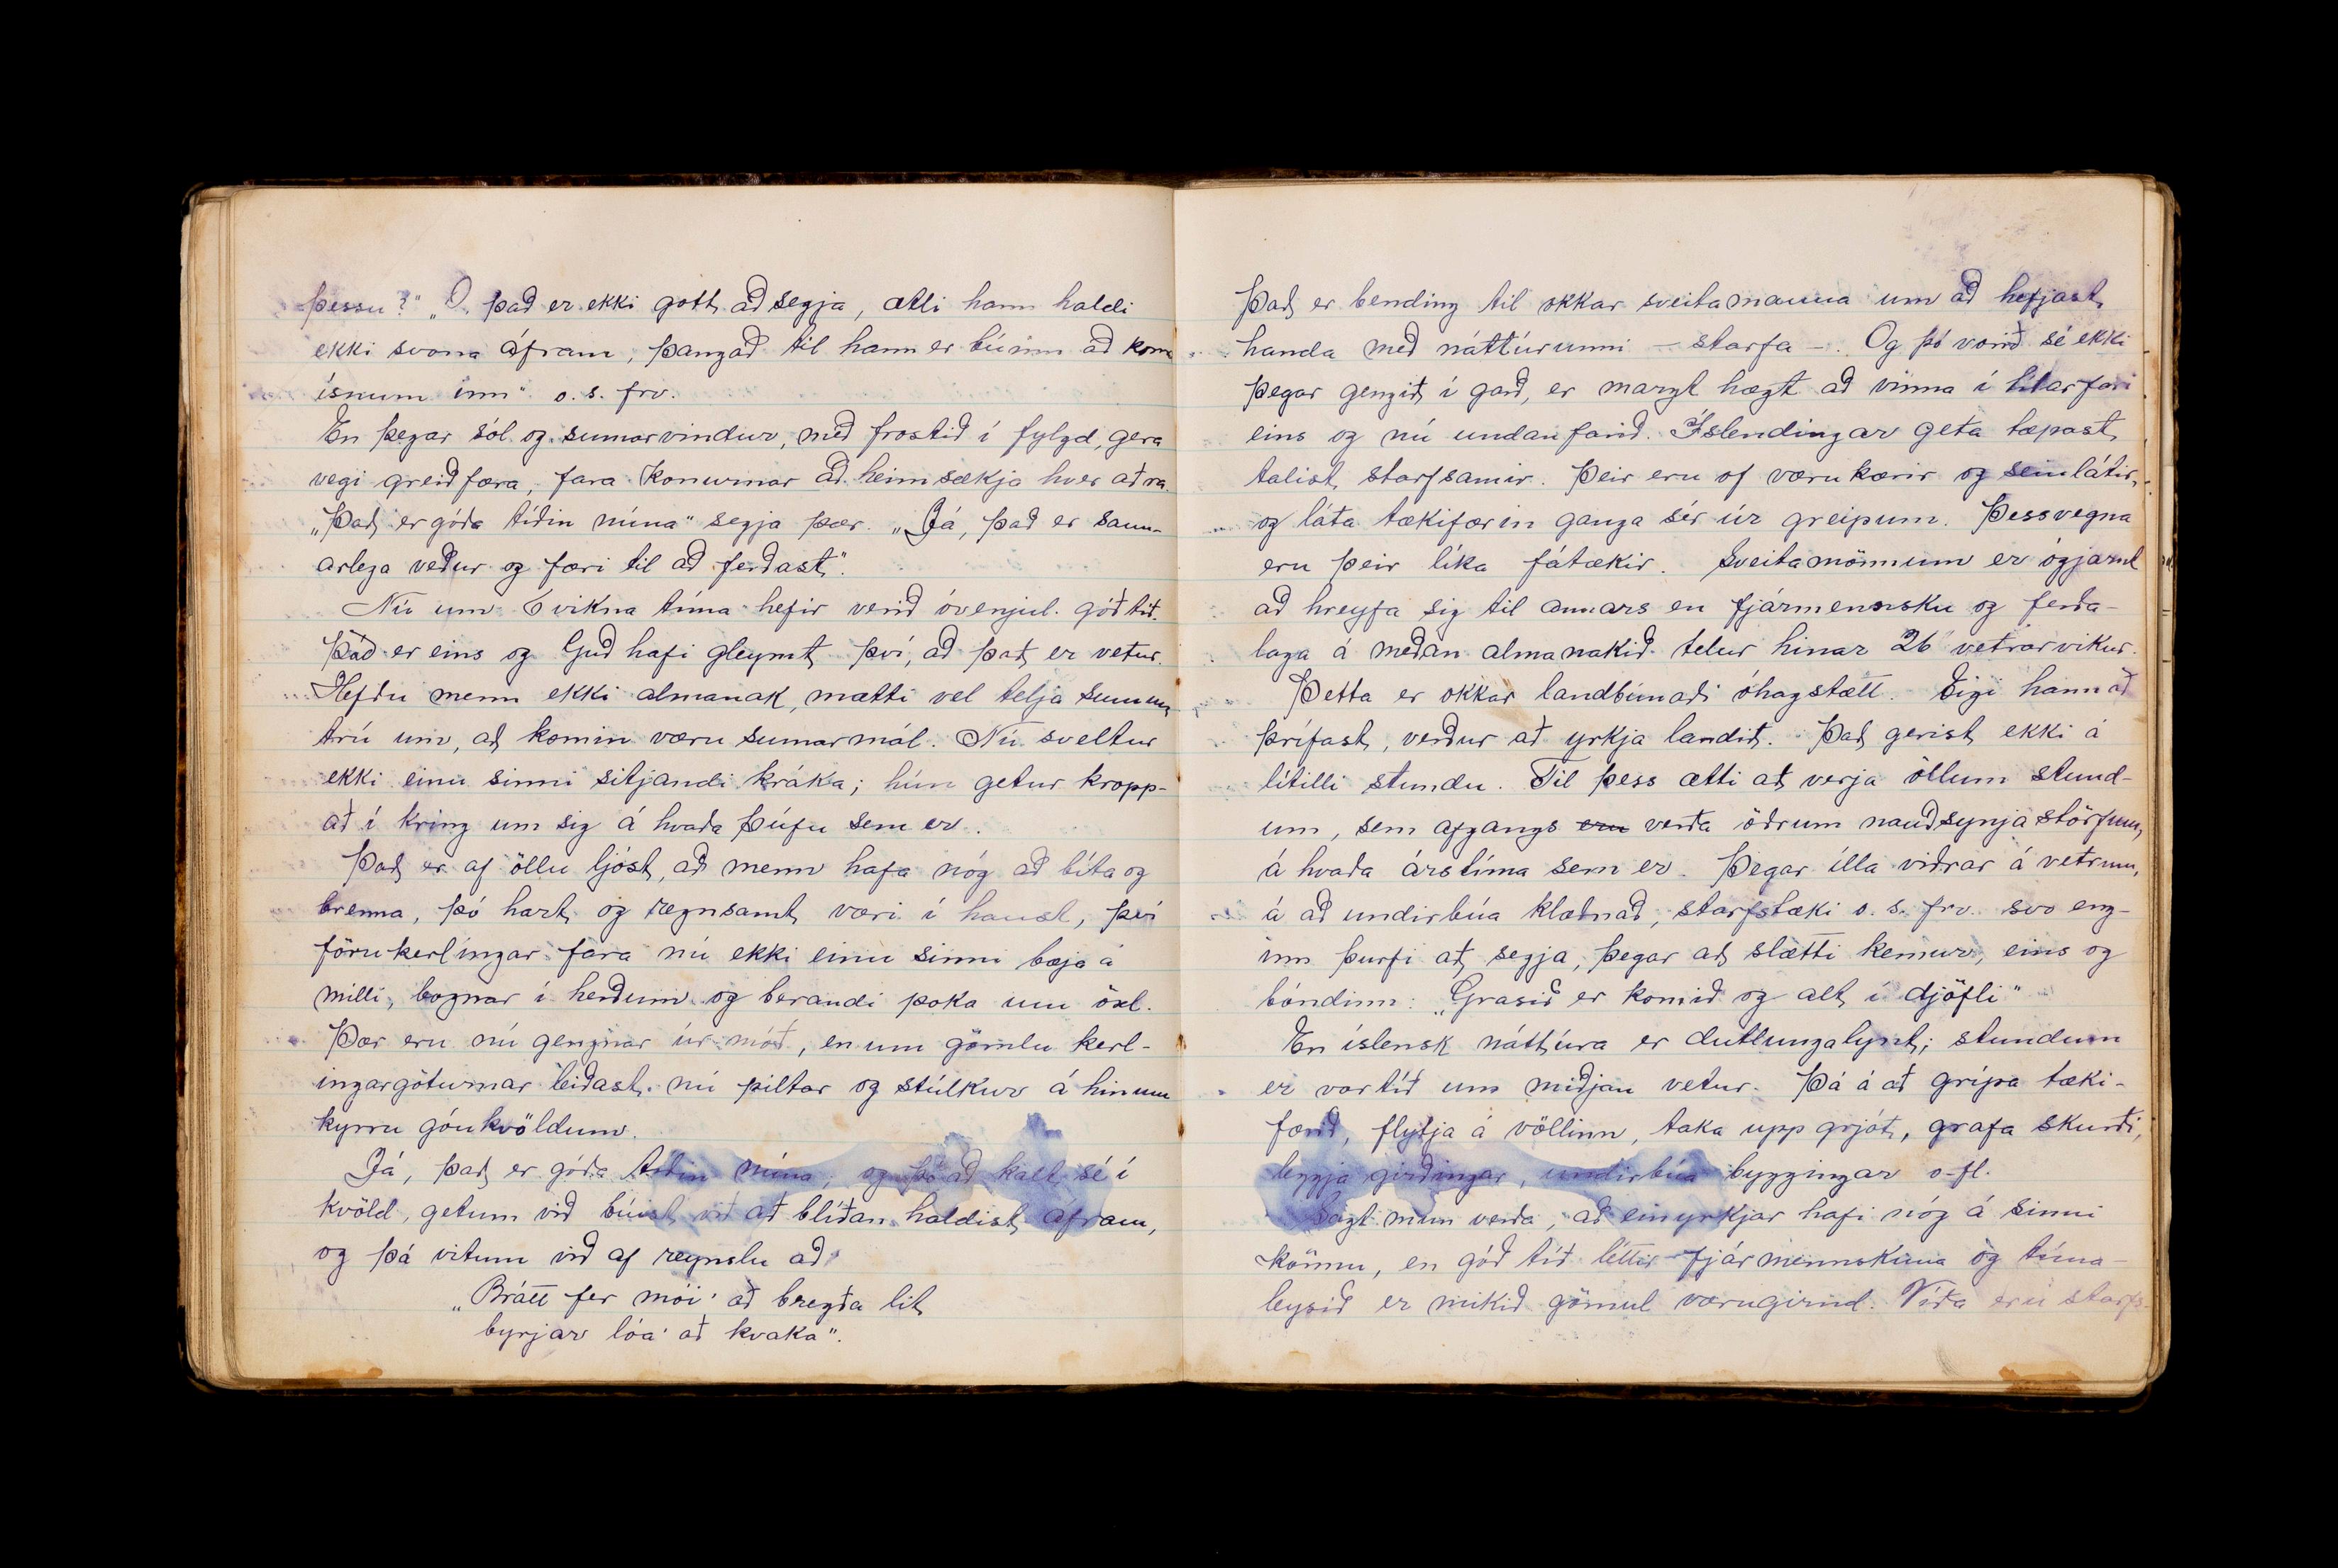 þessu?" „O, það er ekki gott að segja, ætli hann haldi
ekki svona áfram, þangað til hann er búinn að koma
ísnum inn" o. s. frv.
En þegar sól og sumarvindur, með frostið í fylgd, gera
vegi greiðfæra, fara konurnar að heimsækja hver aðra.
„Það er góða tíðin núna" segja þær. „Já, það er saun-
arlega veður og færi til að ferðast".
Nú um 6 vikna tíma hefir verið óvenjul. góð tíð.
Það er eins og Guð hafi gleymt því, að það er vetur.
Hefðu menn ekki almanak, mætti vel telja sumum
trú um, að komin væru sumarmál. Nú sveltur
ekki einu sinni sitjandi kráka; hún getur kropp-
að í kring um sig á hvaða þúfu sem er.
Það er af öllu ljóst, að menn hafa nóg að bíta og
brenna, þó hart og regnsamt væri í haust, því
förukerlingar fara nú ekki einu sinni bæja á
milli, bognar í herðum og berandi poka um öxl.
Þær eru nú gengnar úr móð, en um gömlu kerl-
ingargöturnar leiðast nú piltar og stúlkur á hinum
kyrru góukvöldum.
Já, það er góða tíðin núna; og þó að kalt sé í
kvöld, getum við búist við að blíðan haldist áfram,
og þá vitum við af reynslu að
„Brátt fer mói' að bregða lit
byrjar lóa' að kvaka".
Það er bending til okkar sveitamanna um að hefjast
handa með náttúrunni – starfa –. Og þó vorið sé ekki
þegar gengið í garð, er margt hægt að vinna í tíðarfari
eins og nú undanfarið. Íslendingar geta tæpast
talist starfsamir. Þeir eru of værukærir og seinlátir,
og láta tækifærin ganga sér úr greipum. Þessvegna
eru þeir líka fátækir. Sveitamönnum er ógjarnt
að hreyfa sig til annars en fjármennsku og ferða-
laga á meðan almanakið telur hinar 26 vetrarvikur.
Þetta er okkar landbúnaði óhagstætt. Eigi hann að
þrífast, verður að yrkja landið. Það gerist ekki á
lítilli stundu. Til þess ætti að verja öllum stund-
um, sem afgangs eru verða öðrum nauðsynjastörfum,
á hvaða árstíma sem er. Þegar illa viðrar á vetrum,
á að undirbúa klæðnað, starfstæki o. s. frv. svo eng-
inn þurfi að segja, þegar að slætti kemur, eins og
bóndinn: „Grasið er komið og alt í djöfli"
En íslensk náttúra er dutlungalynt; stundum
er vortíð um miðjan vetur. Þá á að grípa tæki-
færið, flytja á völlinn, taka upp grjót, grafa skurði,
leggja girðingar, undirbúa byggingar o-fl.
Sagt mun verða, að einyrkjar hafi nóg á sinni
könnu, en góð tíð léttir fjármennskuna og tíma-
leysið er mikið gömul værugirnd. Víða eru starfs-